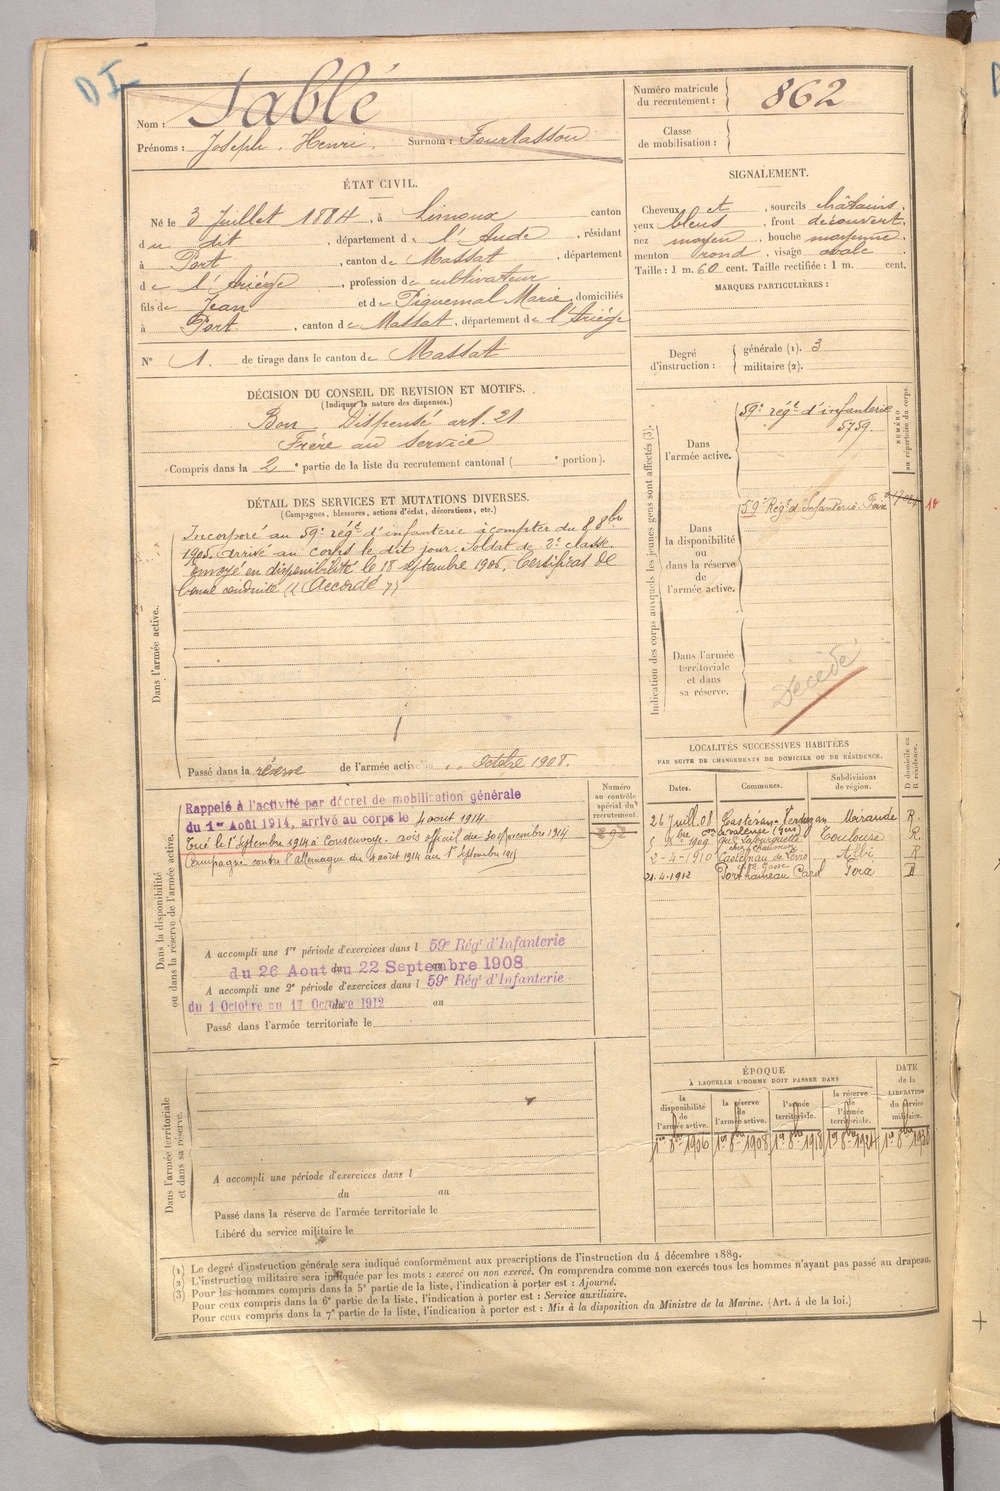 DI
Nom : Sablé
Prénoms : Joseph. Henri. Surnom : Fourtassou
Numéro matricule du recrutement : 862
Classe de mobilisation :
ÉTAT CIVIL.
Né le 3 Juillet 1884, à Limoux canton
du dit, département de l'Aude, résidant
à Port, canton de Massat, département
de l'Ariège, profession de cultivateur
fils de Jean et de Piquemal Marie, domiciliés
à Port, canton de Massat, département de l'Ariège
N° 1. de tirage dans le canton de Massat
SIGNALEMENT.
Cheveux et, sourcils châtains,
yeux bleus, front découvert,
nez moyen, bouche moyenne,
menton rond, visage ovale
Taille : 1 m. 60 cent. Taille rectifiée : 1 m. cent.
MARQUES PARTICULIÈRES :
Degré d'instruction : générale (1). 3
militaire (2).
DÉCISION DU CONSEIL DE REVISION ET MOTIFS.
(Indiquer la nature des dispenses.)
Bon Dispensé art. 21
Frère au service
Compris dans la 2e partie de la liste du recrutement cantonal ( e portion).
DÉTAIL DES SERVICES ET MUTATIONS DIVERSES.
(Campagnes, blessures, actions d'éclat, décorations, etc.)
Dans l'armée active.
Incorporé au 59e régt d'infanterie à compter du 8 8bre
1905. Arrivé au corps le dit jour. Soldat de 2e classe.
Envoyé en disponibilité le 18 septembre 1906. Certificat de
bonne conduite "Accordé"
Passé dans la réserve de l'armée active Octobre 1908.
Indication des corps auxquels les jeunes gens sont affectés (3).
NUMÉRO au répertoire du corps.
Dans l'armée active.
59e régt d'infanterie
5759.
Dans la disponibilité ou dans la réserve de l'armée active.
59e Régt d'Infanterie Foix
Dans l'armée territoriale et dans sa réserve.
Décédé
Dans la disponibilité ou dans la réserve de l'armée active.
Numéro au contrôle spécial du recrutement.
Rappelé à l'activité par décret de mobilisation générale
du 1er Août 1914, arrivé au corps le 4 août 1914.
Tué le 1er Septembre 1914 à Consenvoye. avis officiel du 30 novembre 1914
Campagne contre l'Allemagne du 4 août 1914 au 1er Septembre 1914
A accompli une 1re période d'exercices dans l 59e Rég' d'Infanterie
du 26 Aout au 22 Septembre 1908
A accompli une 2e période d'exercices dans l 59e Rég' d'Infanterie
du 1 Octobre au 17 Octobre 1912 au
Passé dans l'armée territoriale le
LOCALITÉS SUCCESSIVES HABITÉES
PAR SUITE DE CHANGEMENTS DE DOMICILE OU DE RÉSIDENCE.
Dates. Communes. Subdivisions de région. D domicile ou R résidence.
26 Juill. 08 Castéra-Verduzan Mirande R.
1909 Toulouse R.
2-4-1910 Castelnau de Lévis Albi R
21-4-1912 Port Foix D
Dans l'armée territoriale et dans sa réserve.
A accompli une période d'exercices dans l
du au
Passé dans la réserve de l'armée territoriale le
Libéré du service militaire le
ÉPOQUE
À LAQUELLE L'HOMME DOIT PASSER DANS
la disponibilité de l'armée active. la réserve de l'armée active. l'armée territoriale. la réserve de l'armée territoriale.
DATE de la LIBÉRATION du service militaire.
1er 8bre 1906 1er 8bre 1908
(1) Le degré d'instruction générale sera indiqué conformément aux prescriptions de l'Instruction du 4 décembre 1889.
(2) L'instruction militaire sera indiquée par les mots : exercé ou non exercé. On comprendra comme non exercés tous les hommes n'ayant pas passé au drapeau.
(3) Pour les hommes compris dans la 5e partie de la liste, l'indication à porter est : Ajourné.
Pour ceux compris dans la 6e partie de la liste, l'indication à porter est : Service auxiliaire.
Pour ceux compris dans la 7e partie de la liste, l'indication à porter est : Mis à la disposition du Ministre de la Marine. (Art. 4 de la loi.)